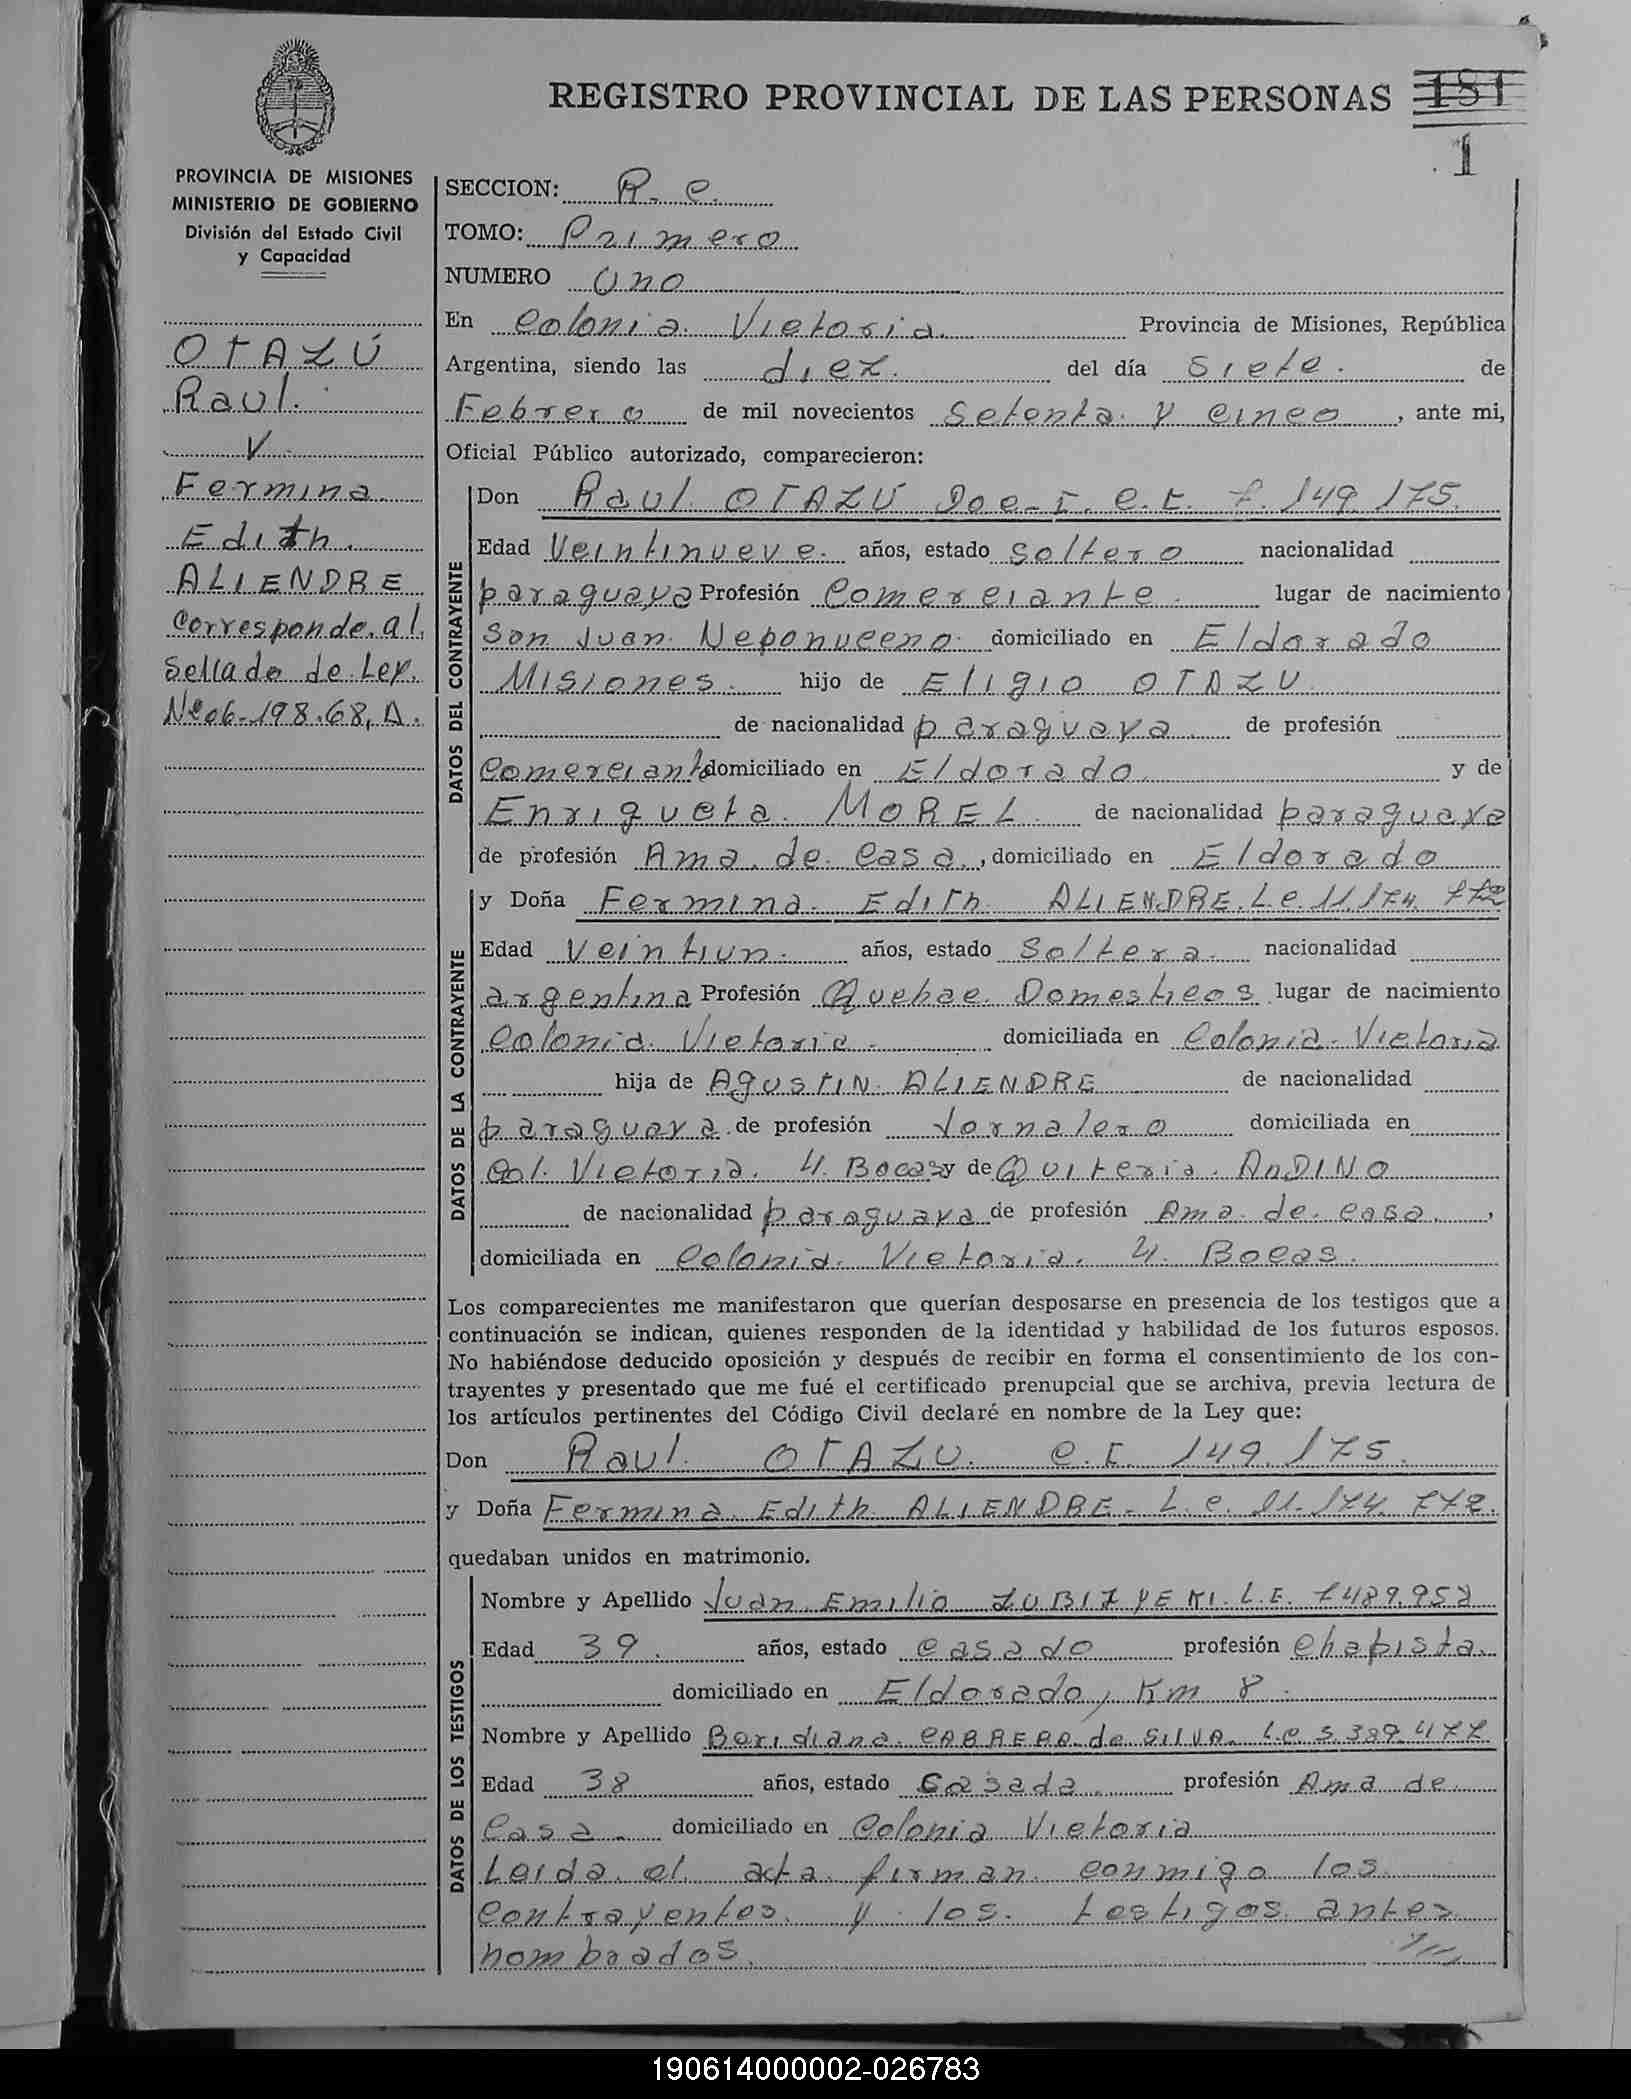 REGISTRO PROVINCIAL DE LAS PERSONAS 181
1
PROVINCIA DE MISIONES
MINISTERIO DE GOBIERNO
División del Estado Civil
y Capacidad
OTAZÚ
Raul.
y
Fermina
Edith.
ALIENDRE
Corresponde al
Sellado de Ley.
Nº 06-198.68, A.
SECCION: R. C.
TOMO: Primero
NUMERO Uno
En Colonia Victoria. Provincia de Misiones, República
Argentina, siendo las diez. del día Siete. de
Febrero de mil novecientos Setenta y cinco, ante mi,
Oficial Público autorizado, comparecieron:
DATOS DEL CONTRAYENTE
Don Raul. OTAZÚ Doc. I. C.I. 149.175.
Edad Veintinueve. años, estado soltero nacionalidad
paraguaya Profesión Comerciante. lugar de nacimiento
San Juan Neponuceno. domiciliado en Eldorado
Misiones. hijo de Eligio OTAZU
de nacionalidad paraguaya de profesión
Comerciante domiciliado en Eldorado y de
Enriqueta MOREL. de nacionalidad paraguaya
de profesión Ama de Casa., domiciliado en Eldorado
DATOS DE LA CONTRAYENTE
y Doña Fermina. Edith ALIENDRE. L.C. 11.174.772
Edad Veintiun. años, estado Soltera. nacionalidad
argentina Profesión Quehac. Domesticos lugar de nacimiento
Colonia Victoria. domiciliada en Colonia Victoria
hija de AGUSTIN ALIENDRE de nacionalidad
paraguaya de profesión Jornalero domiciliada en
Col. Victoria. 4. Bocas y de Quiteria. ANDINO
de nacionalidad paraguaya de profesión Ama de casa,
domiciliada en Colonia Victoria. 4. Bocas.
Los comparecientes me manifestaron que querían desposarse en presencia de los testigos que a
continuación se indican, quienes responden de la identidad y habilidad de los futuros esposos.
No habiéndose deducido oposición y después de recibir en forma el consentimiento de los con-
trayentes y presentado que me fué el certificado prenupcial que se archiva, previa lectura de
los artículos pertinentes del Código Civil declaré en nombre de la Ley que:
Don Raul. OTAZU. C.I. 149.175.
y Doña Fermina Edith ALIENDRE. L.C. 11.174.772.
quedaban unidos en matrimonio.
DATOS DE LOS TESTIGOS
Nombre y Apellido Juan Emilio L.E. 7489.952
Edad 39. años, estado casado profesión chapista.
domiciliado en Eldorado, Km 8.
Nombre y Apellido CABRERA de SILVA. L.C. 3.389.477
Edad 38 años, estado Casada. profesión Ama de
Casa. domiciliado en Colonia Victoria
Leida el acta firman conmigo los
contrayentes y los testigos antes
nombrados.
190614000002-026783